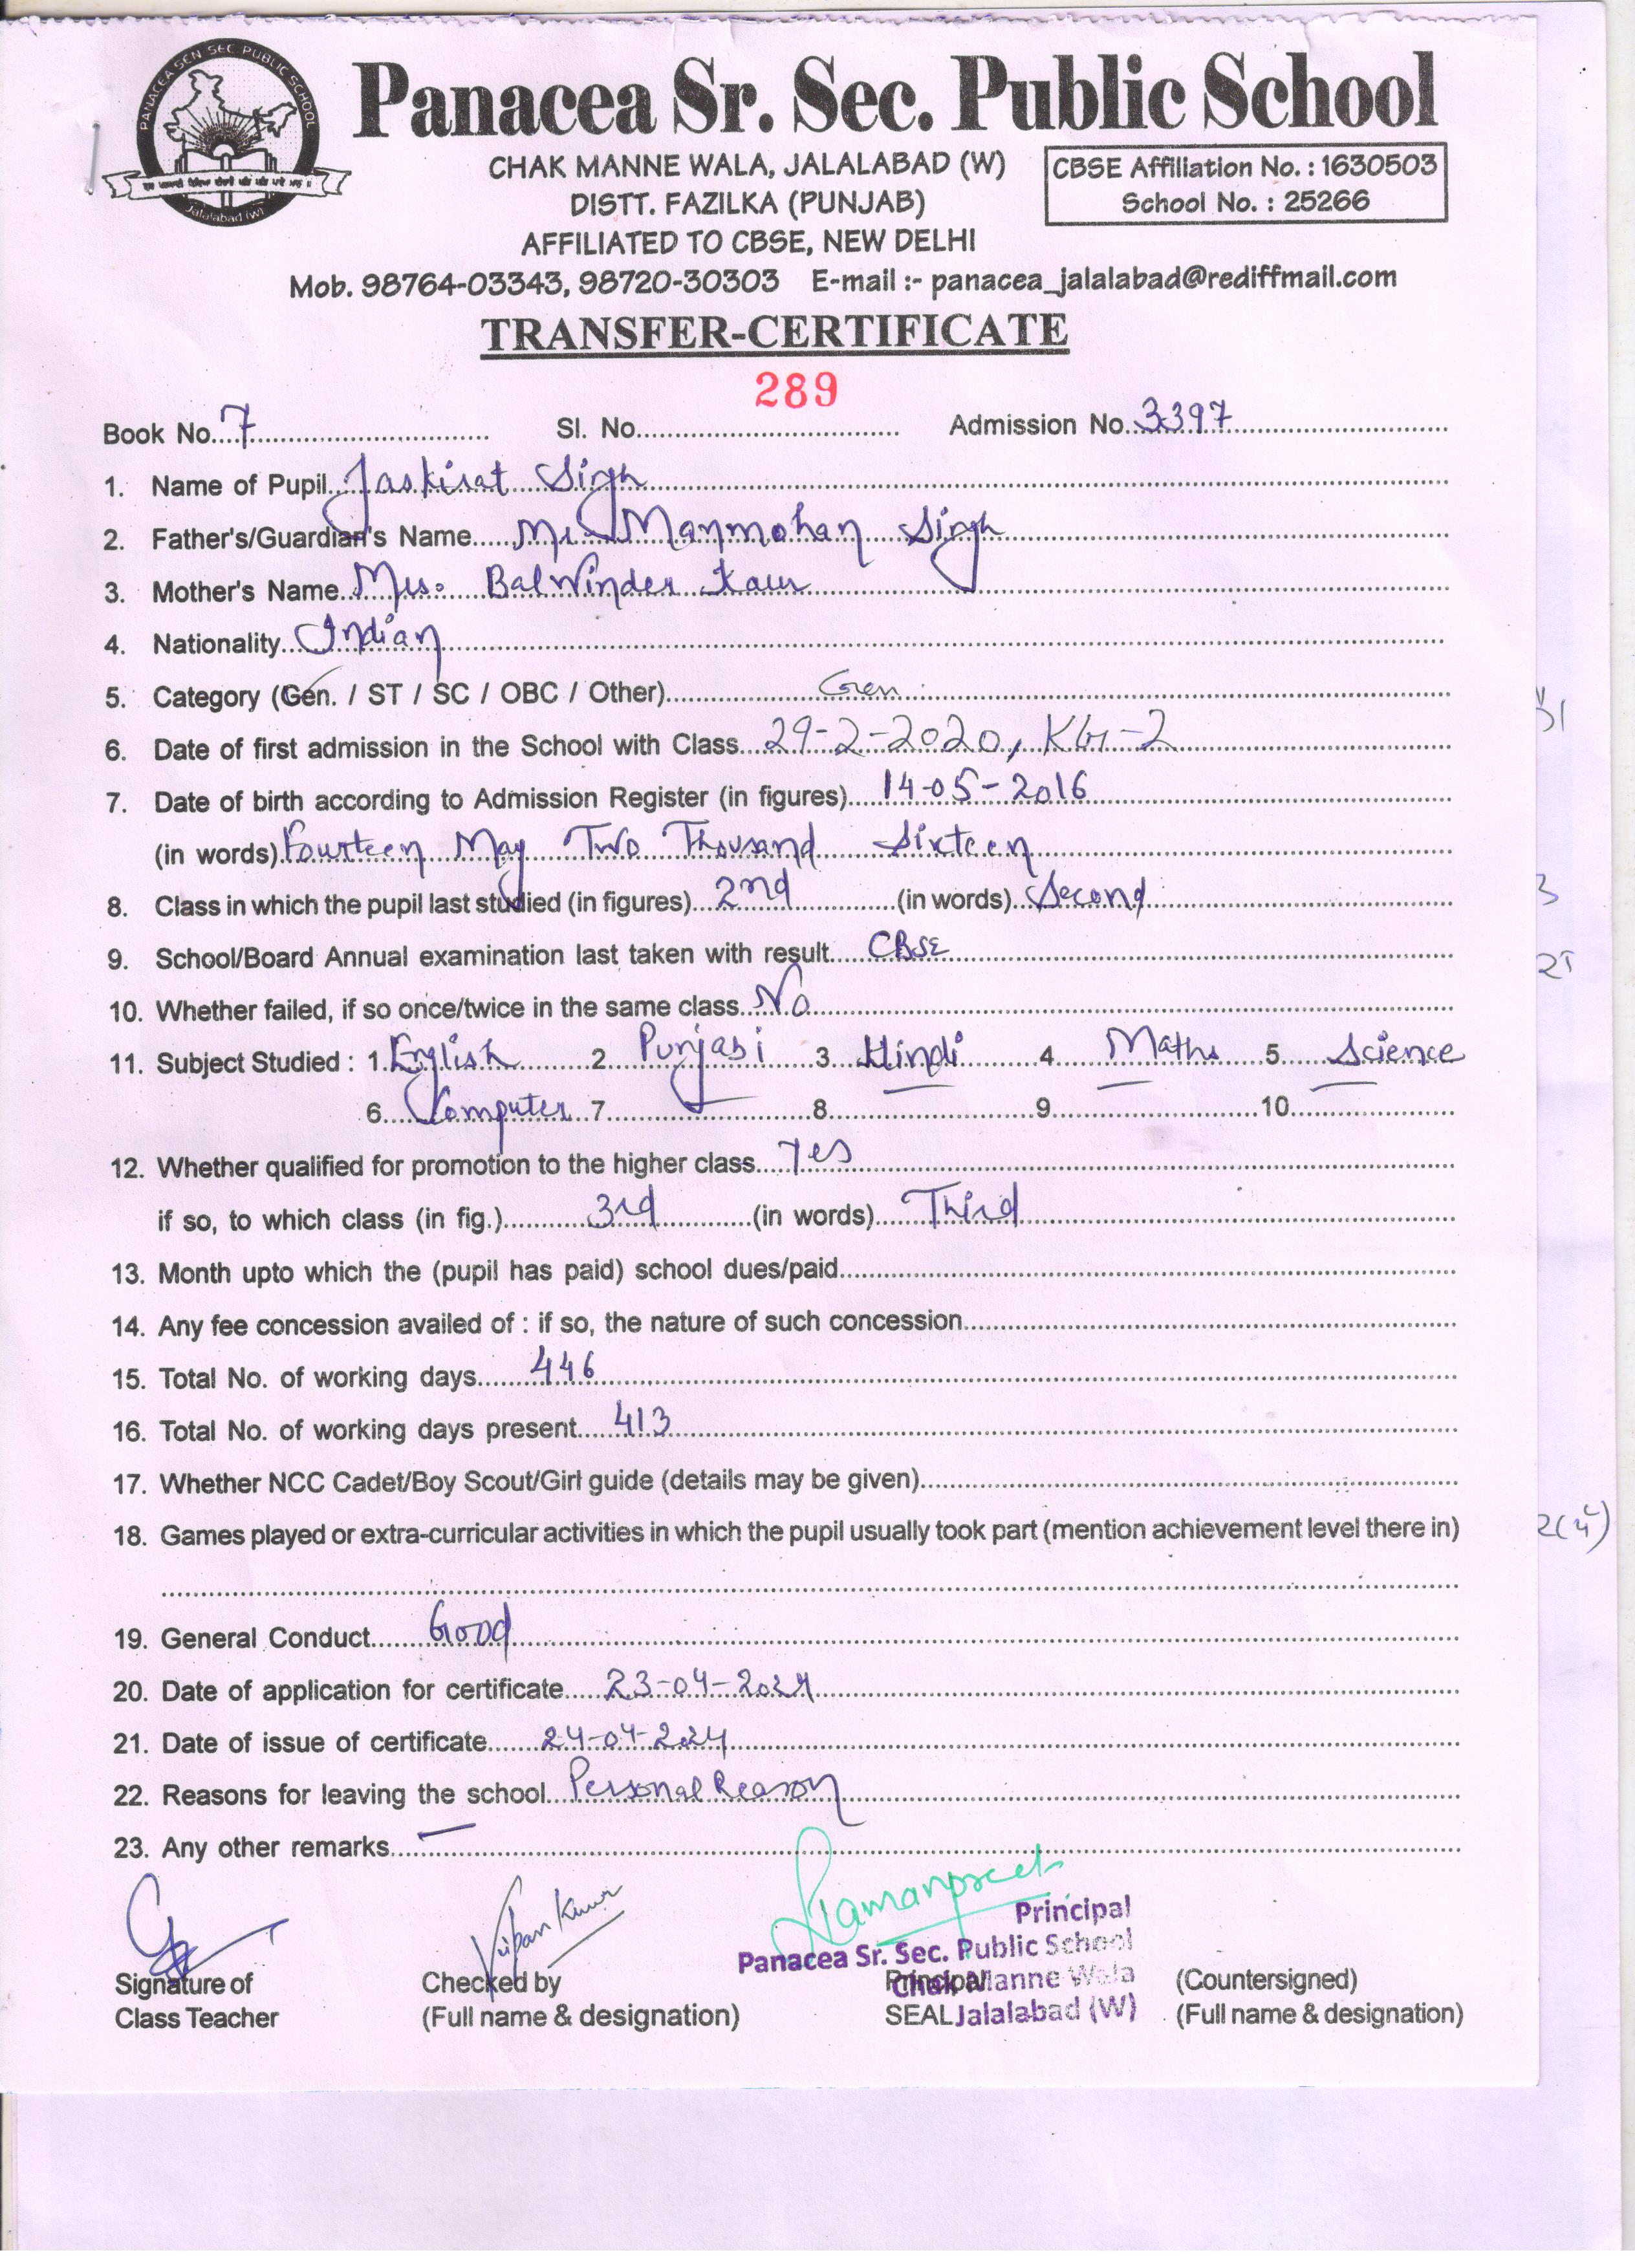 PANACEA SEN SEC PUBLIC SCHOOL
Jalalabad (W)
Panacea Sr. Sec. Public School
CHAK MANNE WALA, JALALABAD (W)
DISTT. FAZILKA (PUNJAB)
AFFILIATED TO CBSE, NEW DELHI
CBSE Affiliation No. : 1630503
School No. : 25266
Mob. 98764-03343, 98720-30303 E-mail :- panacea_jalalabad@rediffmail.com
TRANSFER-CERTIFICATE
289
Book No. 7 Sl. No. Admission No. 3397
1. Name of Pupil Jaskirat Singh
2. Father's/Guardian's Name Mr. Manmohan Singh
3. Mother's Name Mrs. Balwinder Kaur
4. Nationality Indian
5. Category (Gen. / ST / SC / OBC / Other) Gen
6. Date of first admission in the School with Class 29-2-2020, KG-2
7. Date of birth according to Admission Register (in figures) 14-05-2016
(in words) Fourteen May Two Thousand Sixteen
8. Class in which the pupil last studied (in figures) 2nd (in words) Second
9. School/Board Annual examination last taken with result CBSE
10. Whether failed, if so once/twice in the same class No
11. Subject Studied : 1. English 2. Punjabi 3. Hindi 4. Maths 5. Science
6. Computer 7. 8. 9. 10.
12. Whether qualified for promotion to the higher class Yes
if so, to which class (in fig.) 3rd (in words) Third
13. Month upto which the (pupil has paid) school dues/paid
14. Any fee concession availed of : if so, the nature of such concession
15. Total No. of working days 446
16. Total No. of working days present 413
17. Whether NCC Cadet/Boy Scout/Girl guide (details may be given)
18. Games played or extra-curricular activities in which the pupil usually took part (mention achievement level there in)
19. General Conduct Good
20. Date of application for certificate 23-04-2024
21. Date of issue of certificate 24-04-2024
22. Reasons for leaving the school Personal Reason
23. Any other remarks —
Ramanpreet
Principal
Panacea Sr. Sec. Public School
Chak Manne Wala
Jalalabad (W)
Signature of Checked by Principal (Countersigned)
Class Teacher (Full name & designation) SEAL (Full name & designation)